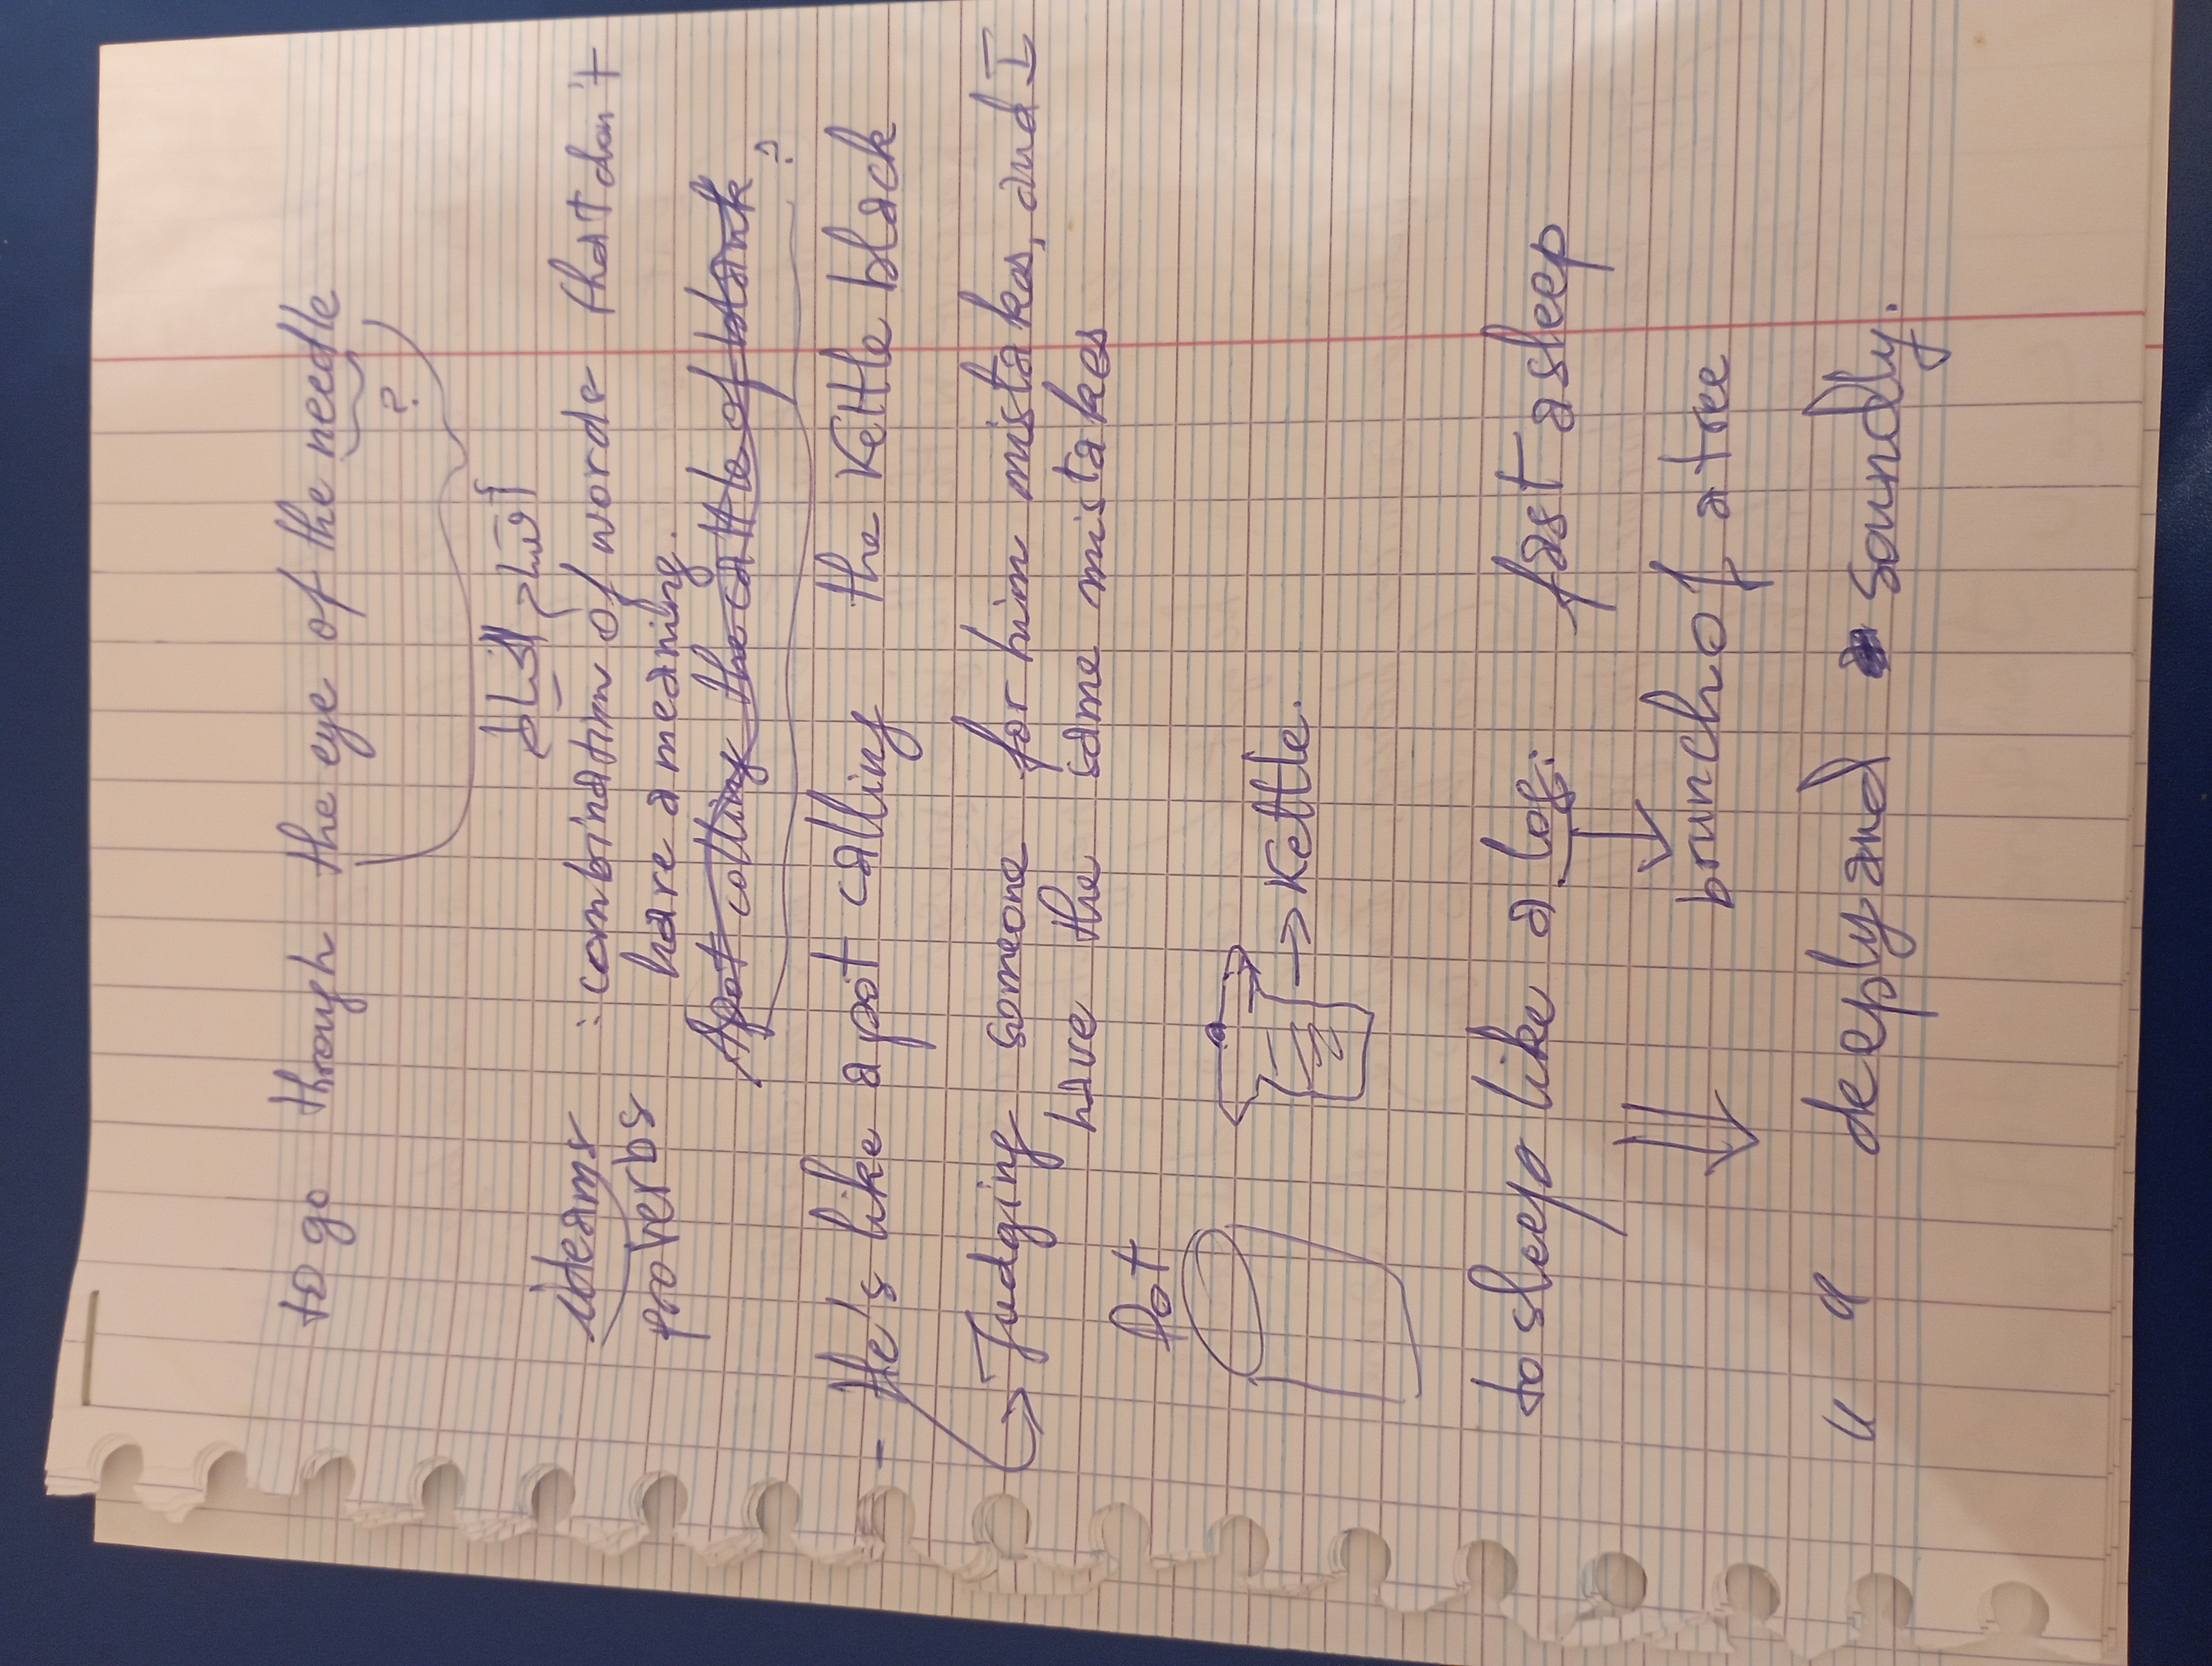 to go through the eye of the needle
?
الخياط
ideams : combination of words that don't
proverbs have a meaning.
A pot calling the cattle of blank ?
- He's like a pot calling the Kettle black
Judging someone for him mistakes, and I
have the same mistakes
Pot
→ Kettle.
to sleep like a log: fast asleep
brunch of a tree
" " deeply and soundly.